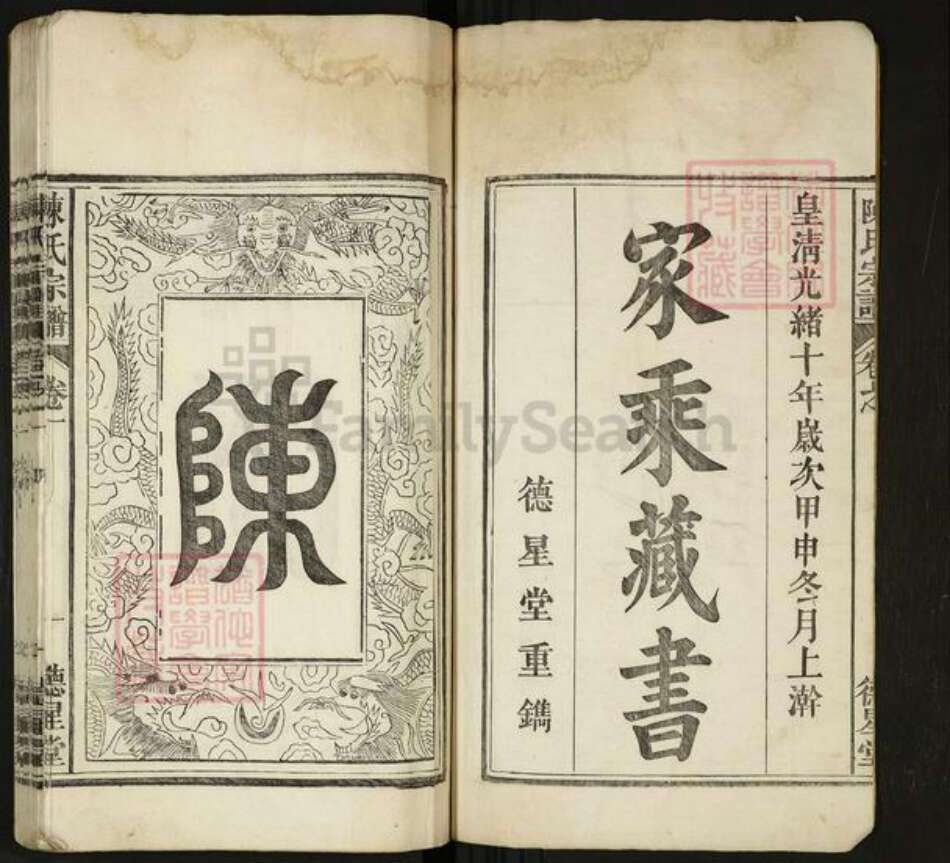 皇清光緒十年歲次甲申冬月上澣
家乘藏書
德星堂重鐫
陳氏宗譜
德星堂
陳
陳氏宗譜 卷一
一
德星堂
FamilySearch